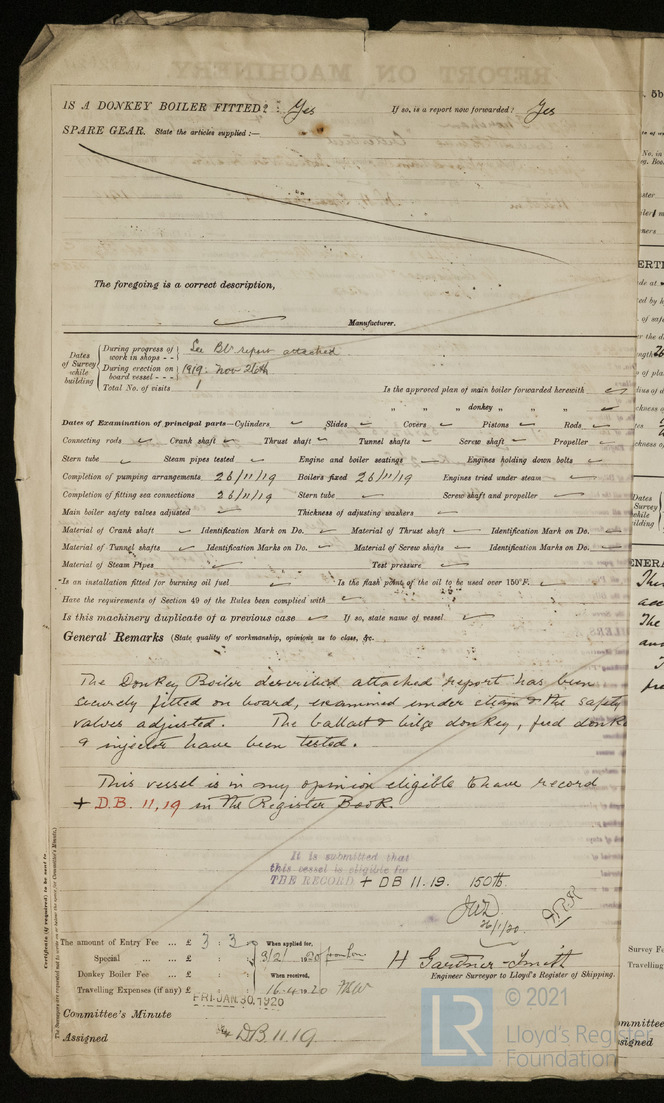 IS A DONKEY BOILER FITTED? Yes If so, is a report now forwarded? Yes
SPARE GEAR. State the articles supplied:—
The foregoing is a correct description,
Manufacturer.
Dates of Survey while building
During progress of work in shops - - See Blr report attached
During erection on board vessel - - - 1919: Nov 26th
Total No. of visits 1 Is the approved plan of main boiler forwarded herewith
" " " donkey " " "
Dates of Examination of principal parts—Cylinders Slides Covers Pistons Rods
Connecting rods Crank shaft Thrust shaft Tunnel shafts Screw shaft Propeller
Stern tube Steam pipes tested Engine and boiler seatings Engines holding down bolts
Completion of pumping arrangements 26/11/19 Boilers fixed 26/11/19 Engines tried under steam
Completion of fitting sea connections 26/11/19 Stern tube Screw shaft and propeller
Main boiler safety valves adjusted Thickness of adjusting washers
Material of Crank shaft Identification Mark on Do. Material of Thrust shaft Identification Mark on Do.
Material of Tunnel shafts Identification Marks on Do. Material of Screw shafts Identification Marks on Do.
Material of Steam Pipes Test pressure
Is an installation fitted for burning oil fuel Is the flash point of the oil to be used over 150°F.
Have the requirements of Section 49 of the Rules been complied with
Is this machinery duplicate of a previous case If so, state name of vessel
General Remarks (State quality of workmanship, opinions as to class, &c.
The Donkey Boiler described attached report has been
securely fitted on board, examined under steam & the safety
valves adjusted. The ballast & bilge donkey, feed donke
& injector have been tested.
This vessel is in my opinion eligible to have record
+ D.B. 11,19 in the Register Book.
It is submitted that
this vessel is eligible for
THE RECORD + DB 11.19. 150th
26/1/20
The amount of Entry Fee ... £ 3 : 3 : When applied for,
Special ... ... £ : : 3/2/1920
Donkey Boiler Fee ... £ : : When received,
Travelling Expenses (if any) £ : : 16.4.1920
H Gardner-Smith
Engineer Surveyor to Lloyd's Register of Shipping.
FRI. JAN. 30. 1920
Committee's Minute
Assigned + DB 11.19
Certificate (if required) to be sent to
© 2021
LR
Lloyd's Register
Foundation